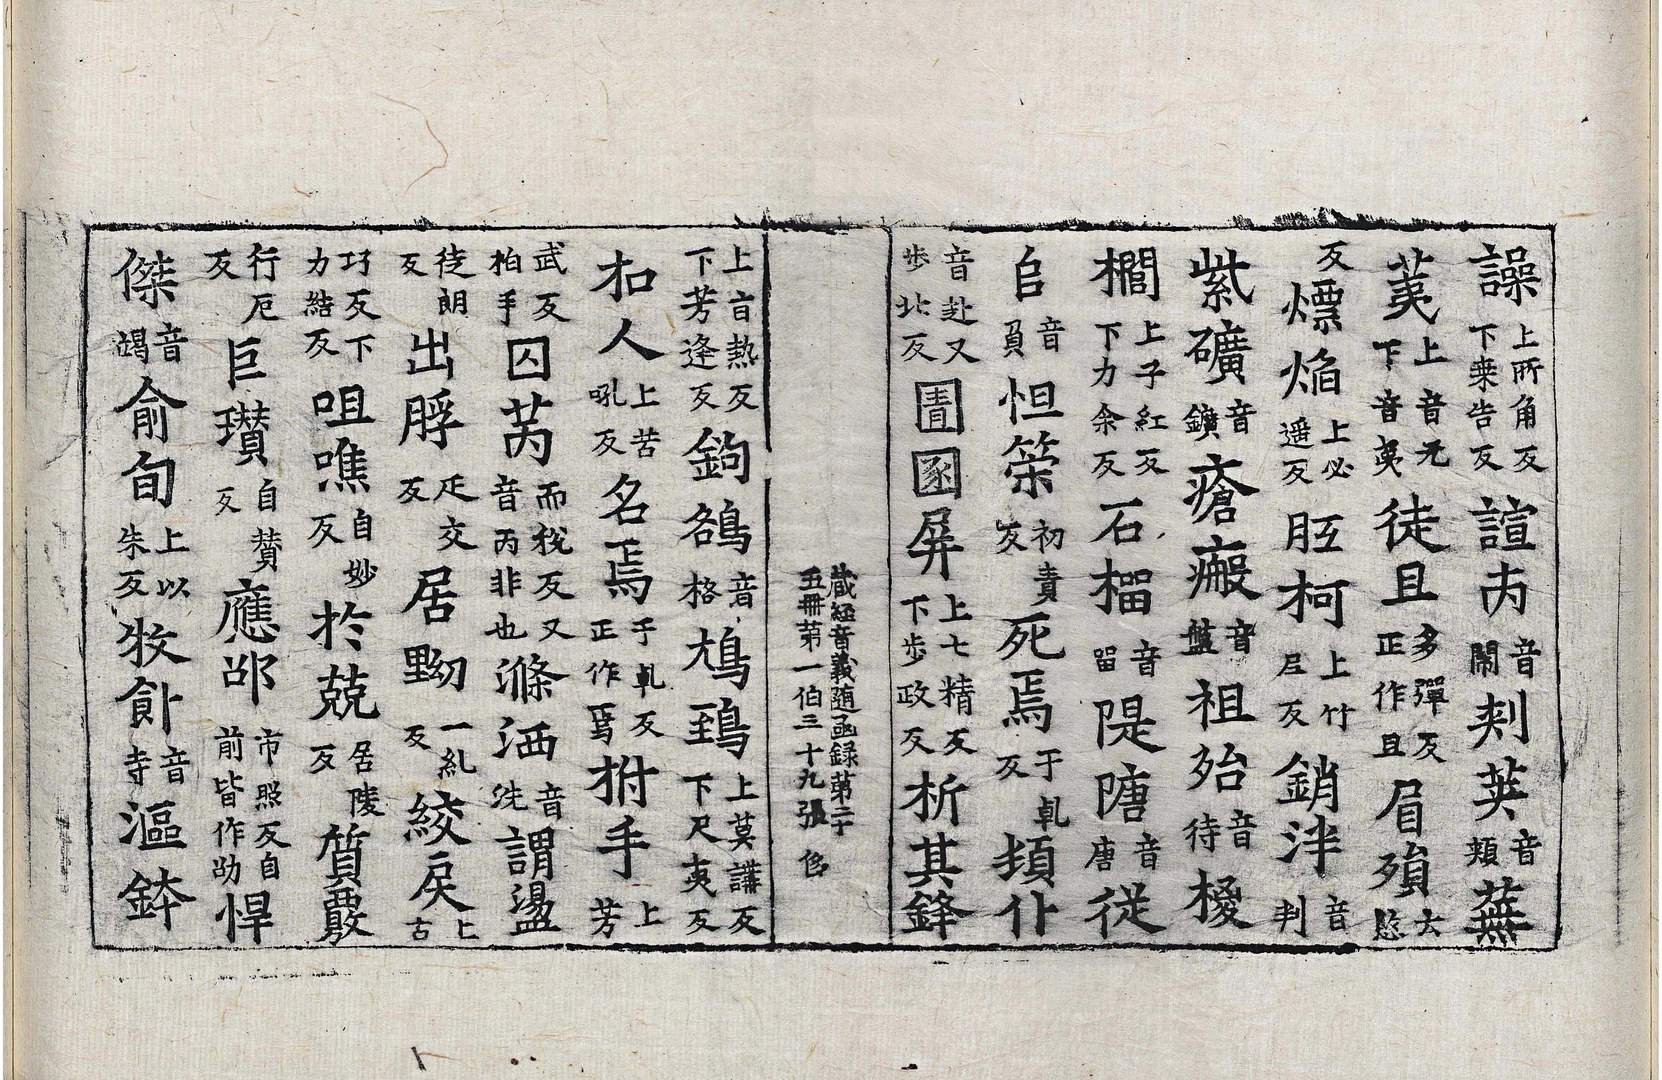 譟上所角反下桒告反諠㕯音閙刾荚音頰蕪
荑上音无下音夷徒且多彈反正作且眉殞玄愍
反熛焰上必遥反胢柯上竹尼反銷泮音判
紫礦音鑛瘡瘢音盤祖殆音待椶
櫚上子紅反下力余反石榴音留隄隯音唐從
㠯音負怛筞初責反死焉于軋反頄仆
音赴又步北反圊圂屏上七精反下步政反析其鋒
蔵経音義随函録第二十
五冊第一伯三十九張
上音熱反下芳逢反鉤鵅音格鴆鵄上莫講反下尺夷反
扣人上苦吼反名焉于軋反正作焉拊手上芳
武反柏手囚芮而税反又音丙非也滌洒音洗謂盪
徒朗反出脬疋交反居黝一糺反絞戻上古
巧反下力結反咀噍自妙反於兢居陵反質覈
行厄反巨瓚自賛反應邵市照反自前皆作劭悍
傑音竭俞旬上以朱反牧飤音寺漚鉢